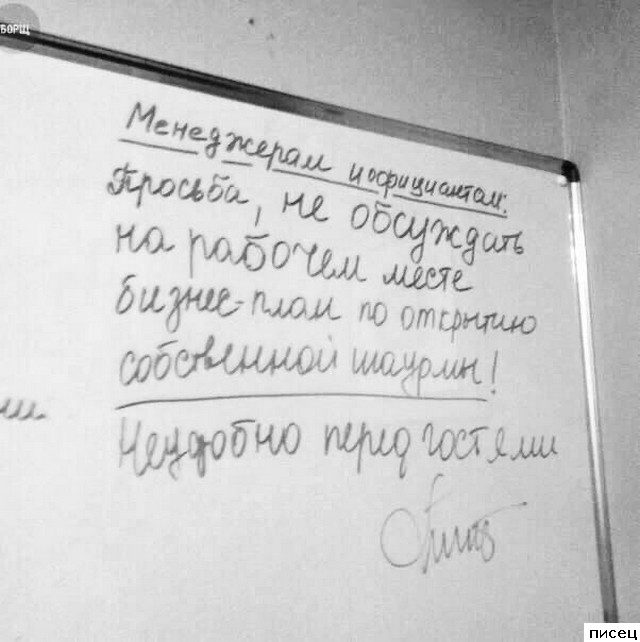 БОРЩ
Менеджерам и официантам:
Просьба, не обсуждать
на рабочем месте
бизнес-план по открытию
собственной шаурмы!
Неудобно перед гостями
писец